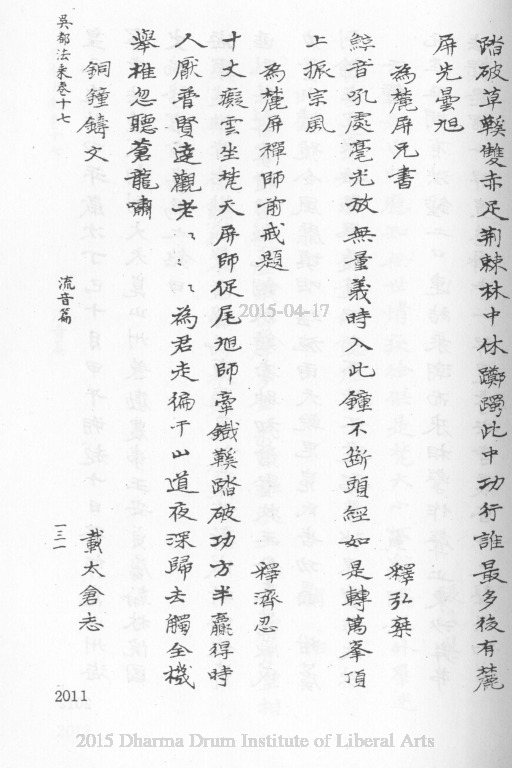 踏破草鞵雙赤足荆棘林中休躑躅此中功行誰最多後有麓
屏先曇旭
為麓屏兄書　釋弘棻
鯨音吼處毫光放無量義時入此鐘不斷頭經如是轉萬峯頂
上振宗風
為麓屏禪師前戒題　釋濟忍
十丈癡雲坐梵天屏師促尾旭師牽鐵鞵踏破功方半贏得時
人厭普賢達觀老〻〻〻為君走徧千山道夜深歸去觸全機
舉椎忽聽蒼龍嘯
銅鐘鑄文　載太倉志
吳都法乘卷十七
流音篇
一三一
2011
2015-04-17
2015 Dharma Drum Institute of Liberal Arts